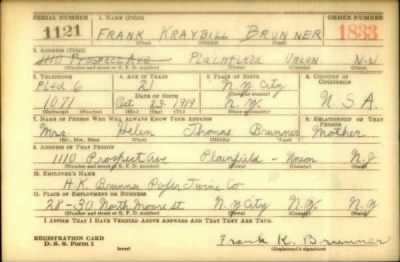 SERIAL NUMBER 1. NAME (Print) ORDER NUMBER
1121 FRANK KRAYBILL BRUNNER 1833
(First) (Middle) (Last)
2. ADDRESS (Print)
1110 Prospect Ave Plainfield Union N.J.
(Number and street or R. F. D. number) (Town) (County) (State)
3. TELEPHONE 4. AGE IN YEARS 5. PLACE OF BIRTH 6. COUNTRY OF CITIZENSHIP
Pl fd 6 21 N. Y. City
DATE OF BIRTH
1071 Oct 23 1919 N. Y. U S A
(Mo.) (Day) (Yr.) (State or country)
7. NAME OF PERSON WHO WILL ALWAYS KNOW YOUR ADDRESS 8. RELATIONSHIP OF THAT PERSON
Mrs. Helen Thomas Brunner Mother
(Mr., Mrs., Miss) (First) (Middle) (Last)
9. ADDRESS OF THAT PERSON
1110 Prospect Ave Plainfield - Union N.J
(Number and street or R. F. D. number) (Town) (County) (State)
10. EMPLOYER'S NAME
H.K. Brunner Paper Twine Co
11. PLACE OF EMPLOYMENT OR BUSINESS
28-30 North Moore st N. Y City N. Y. N. Y
(Number and street or R. F. D. number) (Town) (County) (State)
I AFFIRM THAT I HAVE VERIFIED ABOVE ANSWERS AND THAT THEY ARE TRUE.
REGISTRATION CARD
D. S. S. Form 1 (over) Frank K. Brunner
(Registrant's signature)